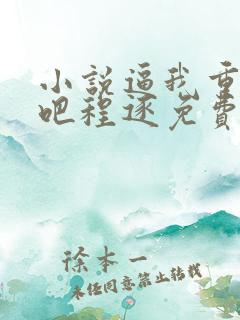 小說逼我重
吧程逐免費
徐本一
未经同意禁止转载